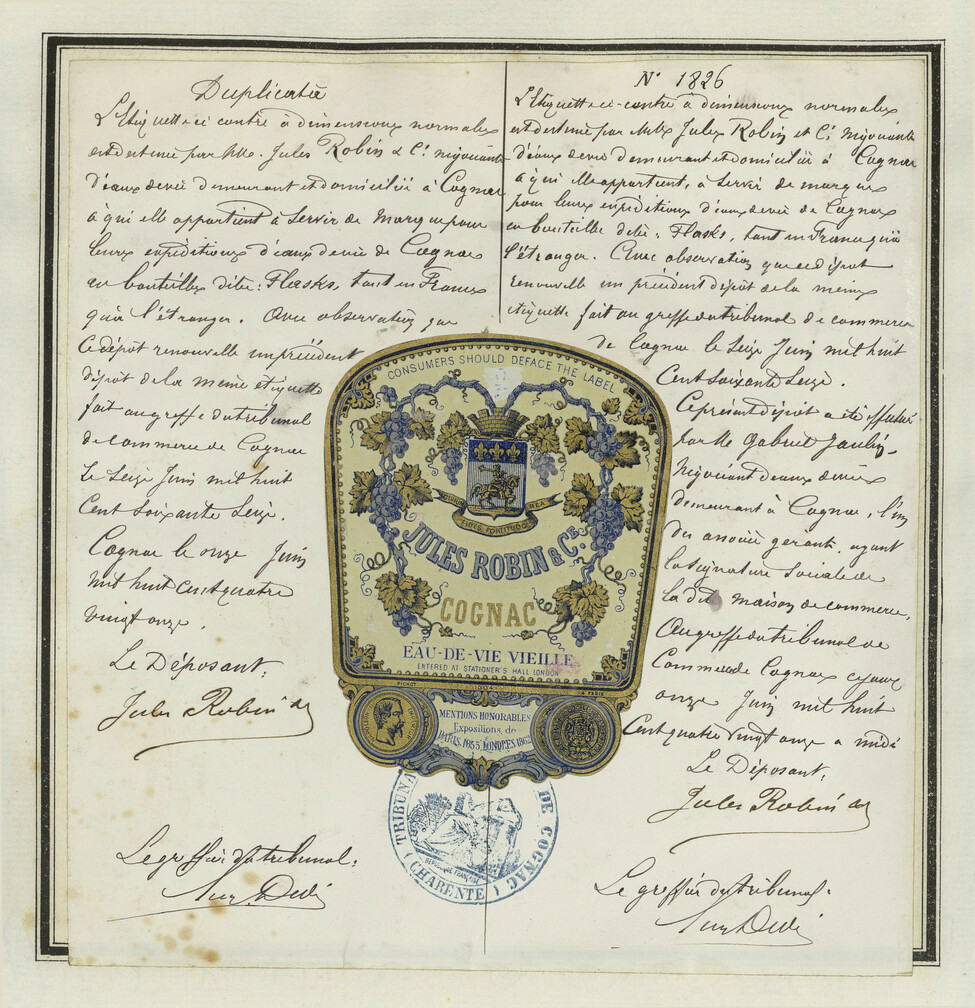 Duplicata
L'Etiquette ci contre à dimensions normales
est destinée par MM. Jules Robin & Cie négociants
d'eaux de vie demeurant et domiciliés à Cognac
à qui elle appartient à servir de marque pour
leurs expéditions d'eaux de vie de Cognac
en bouteilles dites: Flasks, tant en France
qu'à l'étranger. Avec observation que
ce dépôt renouvelle un précédent
dépôt de la même étiquette
fait au greffe du tribunal
de commerce de Cognac
le seize Juin mil huit
Cent soixante seize.
Cognac le onze Juin
mil huit cent quatre
vingt onze.
Le Déposant:
Jules Robin &
Le greffier du tribunal:
N° 1826
L'Etiquette ci-contre à dimensions normales
est destinée par MM Jules Robin et Cie Négociants
d'eaux de vie demeurant et domiciliés à Cognac
à qui elle appartient, à servir de marque
pour leurs expéditions d'eaux de vie de Cognac
en bouteille dites: Flasks, tant en France qu'à
l'étranger. Avec observation que ce dépôt
renouvelle un précédent dépôt de la même
étiquette fait au greffe du tribunal de commerce
de Cognac le seize Juin mil huit
Cent soixante seize.
Ce présent dépôt a été effectué
par M. Gabriel Jaulin,
Négociant d'eaux de vie
demeurant à Cognac, l'un
des associés gérant, ayant
la signature sociale de
la dite maison de commerce,
Au greffe du tribunal de
Commerce de Cognac ce jour
onze Juin mil huit
Cent quatre vingt onze a midi
Le Déposant:
Jules Robin &
Le greffier du tribunal:
CONSUMERS SHOULD DEFACE THE LABEL
MEA
FIDES, FORTITUDO
JULES ROBIN & Cie.
COGNAC
EAU-DE-VIE VIEILLE
ENTERED AT STATIONER'S HALL LONDON
PICHOT
A PARIS
MENTIONS HONORABLES
Expositions de
PARIS, 1855, LONDRES 1862
TRIBUNAL DE COGNAC
REPUBLIQUE FRANÇAISE
(CHARENTE)